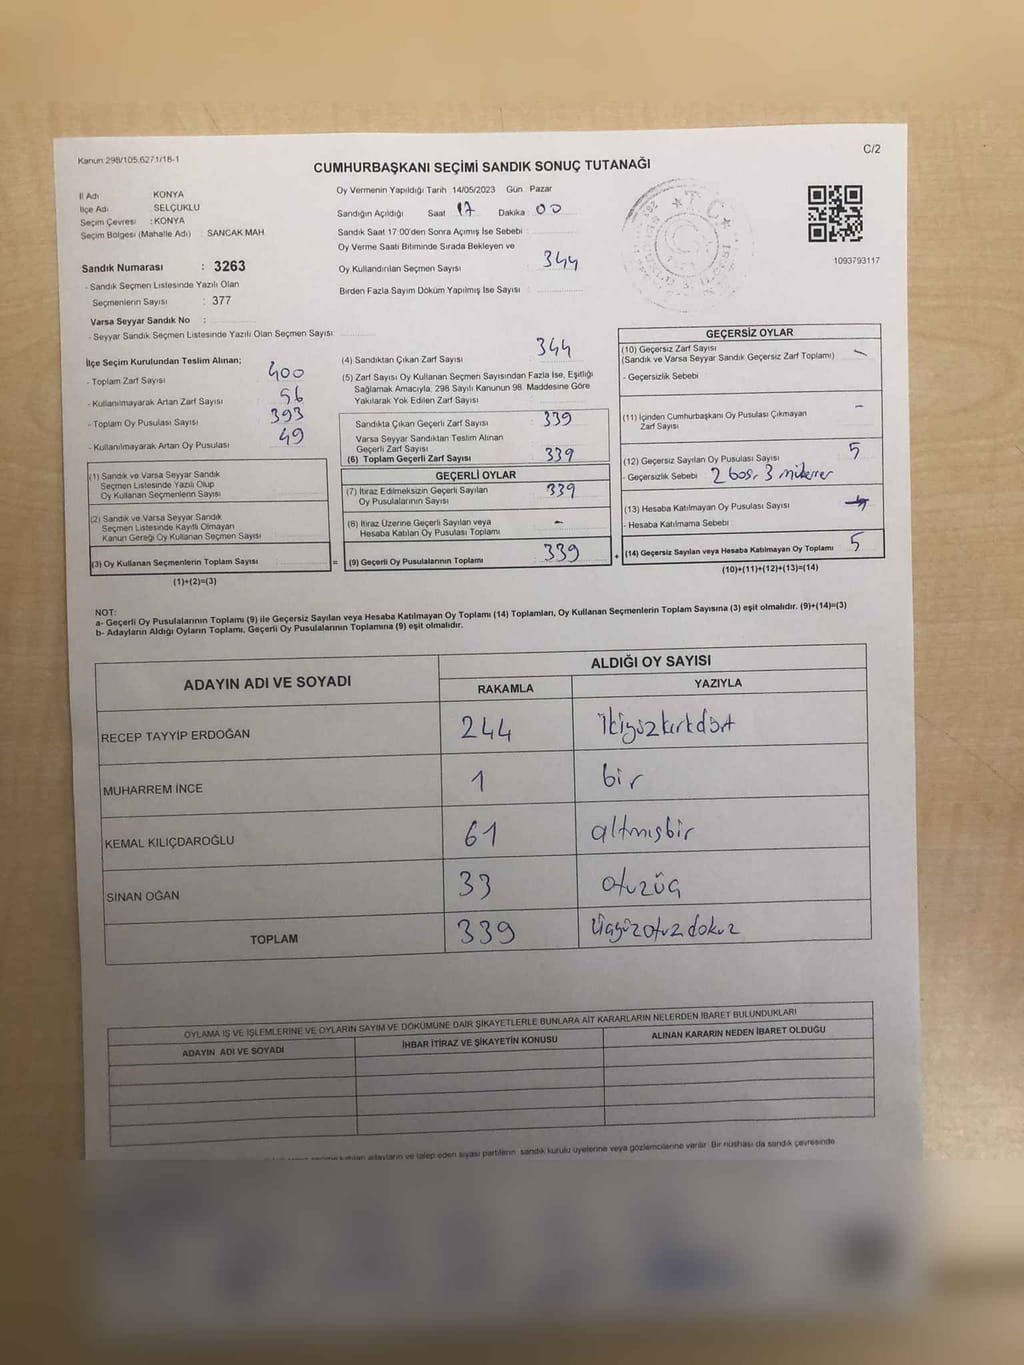 Kanun 298/105,6271/18-1
C/2
CUMHURBAŞKANI SEÇİMİ SANDIK SONUÇ TUTANAĞI
İl Adı KONYA
İlçe Adı SELÇUKLU
Seçim Çevresi : KONYA
Seçim Bölgesi (Mahalle Adı) : SANCAK MAH
Sandık Numarası : 3263
- Sandık Seçmen Listesinde Yazılı Olan
Seçmenlerin Sayısı : 377
Varsa Seyyar Sandık No :
- Seyyar Sandık Seçmen Listesinde Yazılı Olan Seçmen Sayısı:
Oy Vermenin Yapıldığı Tarih 14/05/2023 Gün Pazar
Sandığın Açıldığı Saat 17 Dakika 00
Sandık Saat 17:00'den Sonra Açımış İse Sebebi :
Oy Verme Saati Bitiminde Sırada Bekleyen ve
Oy Kullandırılan Seçmen Sayısı 344
Birden Fazla Sayım Döküm Yapılmış İse Sayısı :
T.C.
1093793117
İlçe Seçim Kurulundan Teslim Alınan;
- Toplam Zarf Sayısı 400
- Kullanılmayarak Artan Zarf Sayısı 56
- Toplam Oy Pusulası Sayısı 393
- Kullanılmayarak Artan Oy Pusulası 49
(1) Sandık ve Varsa Seyyar Sandık
Seçmen Listesinde Yazılı Olup
Oy Kullanan Seçmenlerin Sayısı
(2) Sandık ve Varsa Seyyar Sandık
Seçmen Listesinde Kayıtlı Olmayan
Kanun Gereği Oy Kullanan Seçmen Sayısı
(3) Oy Kullanan Seçmenlerin Toplam Sayısı
(1)+(2)=(3)
(4) Sandıktan Çıkan Zarf Sayısı 344
(5) Zarf Sayısı Oy Kullanan Seçmen Sayısından Fazla İse, Eşitliği
Sağlamak Amacıyla, 298 Sayılı Kanunun 98. Maddesine Göre
Yakılarak Yok Edilen Zarf Sayısı
Sandıkta Çıkan Geçerli Zarf Sayısı 339
Varsa Seyyar Sandıktan Teslim Alınan
Geçerli Zarf Sayısı
(6) Toplam Geçerli Zarf Sayısı 339
GEÇERLİ OYLAR
(7) İtiraz Edilmeksizin Geçerli Sayılan 339
Oy Pusulalarının Sayısı
(8) İtiraz Üzerine Geçerli Sayılan veya -
Hesaba Katılan Oy Pusulası Toplamı
= (9) Geçerli Oy Pusulalarının Toplamı 339
GEÇERSİZ OYLAR
(10) Geçersiz Zarf Sayısı
(Sandık ve Varsa Seyyar Sandık Geçersiz Zarf Toplamı) -
- Geçersizlik Sebebi
(11) İçinden Cumhurbaşkanı Oy Pusulası Çıkmayan -
Zarf Sayısı
(12) Geçersiz Sayılan Oy Pusulası Sayısı 5
- Geçersizlik Sebebi 2 boş, 3 mükerrer
(13) Hesaba Katılmayan Oy Pusulası Sayısı
- Hesaba Katılmama Sebebi
+ (14) Geçersiz Sayılan veya Hesaba Katılmayan Oy Toplamı 5
(10)+(11)+(12)+(13)=(14)
NOT:
a- Geçerli Oy Pusulalarının Toplamı (9) ile Geçersiz Sayılan veya Hesaba Katılmayan Oy Toplamı (14) Toplamları, Oy Kullanan Seçmenlerin Toplam Sayısına (3) eşit olmalıdır. (9)+(14)=(3)
b- Adayların Aldığı Oyların Toplamı, Geçerli Oy Pusulalarının Toplamına (9) eşit olmalıdır.
ADAYIN ADI VE SOYADI ALDIĞI OY SAYISI
RAKAMLA YAZIYLA
RECEP TAYYİP ERDOĞAN 244 ikiyüzkırkdört
MUHARREM İNCE 1 bir
KEMAL KILIÇDAROĞLU 61 altmışbir
SİNAN OĞAN 33 otuzüç
TOPLAM 339 üçyüzotuzdokuz
OYLAMA İŞ VE İŞLEMLERİNE VE OYLARIN SAYIM VE DÖKÜMÜNE DAİR ŞİKAYETLERLE BUNLARA AİT KARARLARIN NELERDEN İBARET BULUNDUKLARI
ADAYIN ADI VE SOYADI İHBAR İTİRAZ VE ŞİKAYETİN KONUSU ALINAN KARARIN NEDEN İBARET OLDUĞU
adayların ve talep eden siyasi partilerin sandık kurulu üyelerine veya gözlemcilerine verilir. Bir nüshası da sandık çevresinde